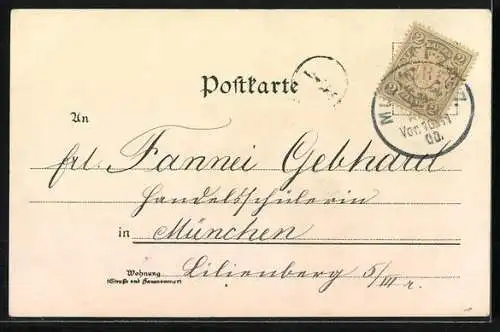 Postkarte
An
Frl. Fannei Gebhard
Handelsschülerin
in München
Wohnung
(Straße und Hausnummer)
Lilienberg 5/III r.
2 2
2 2
Vor. 10-11
00.